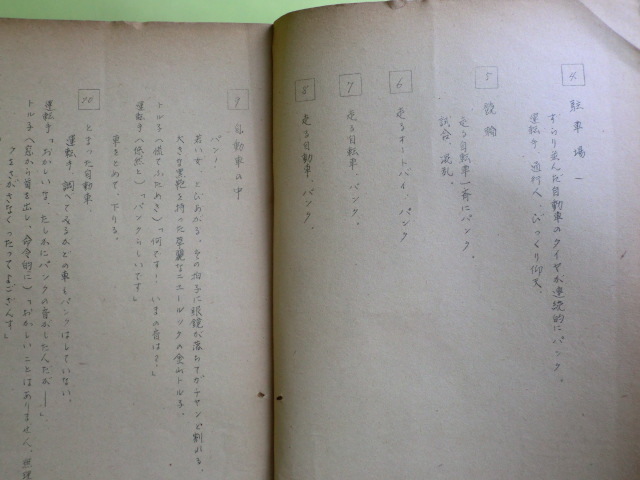 4
駐車場 一
ずらり並んだ自動車のタイヤが連続的にパンク。
運転手、通行人、びっくり仰天。
5
競輪
走る自転車一斉にパンク。
試合混乱。
6
走るオートバイ、パンク。
7
走る自転車、パンク。
8
走る自動車、パンク。
9
自動車の中
パン!
若い女、とびあがる。その拍子に眼鏡が落ちてガチャンと割れる。
大きな黒鞄を持った華麗なニュールックの金山トル子。
トル子(慌てふためき)「何です!いまの音は?」
運転手(悠然と)「パンクらしいです」
車をとめて、下りる。
10
とまった自動車。
運転手、調べてみるがどの車もパンクはしていない。
運転手「おかしいな、たしかにパンクの音がした人だが――」
トル子(窓から首を出し、命令的に)「おかしいことはありません、無理
つまさがさなくったってよござんす」